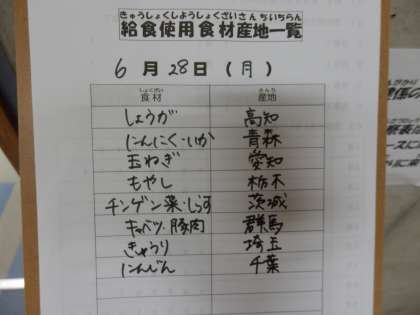 きゅうしょくしようしょくざいさんちいちらん
給食使用食材産地一覧
6月28日(月)
しょくざい さんち
食材 産地
しょうが 高知
にんにく・いか 青森
玉ねぎ 愛知
もやし 栃木
チンゲン菜・しらす 茨城
キャベツ・豚肉 群馬
きゅうり 埼玉
にんじん 千葉